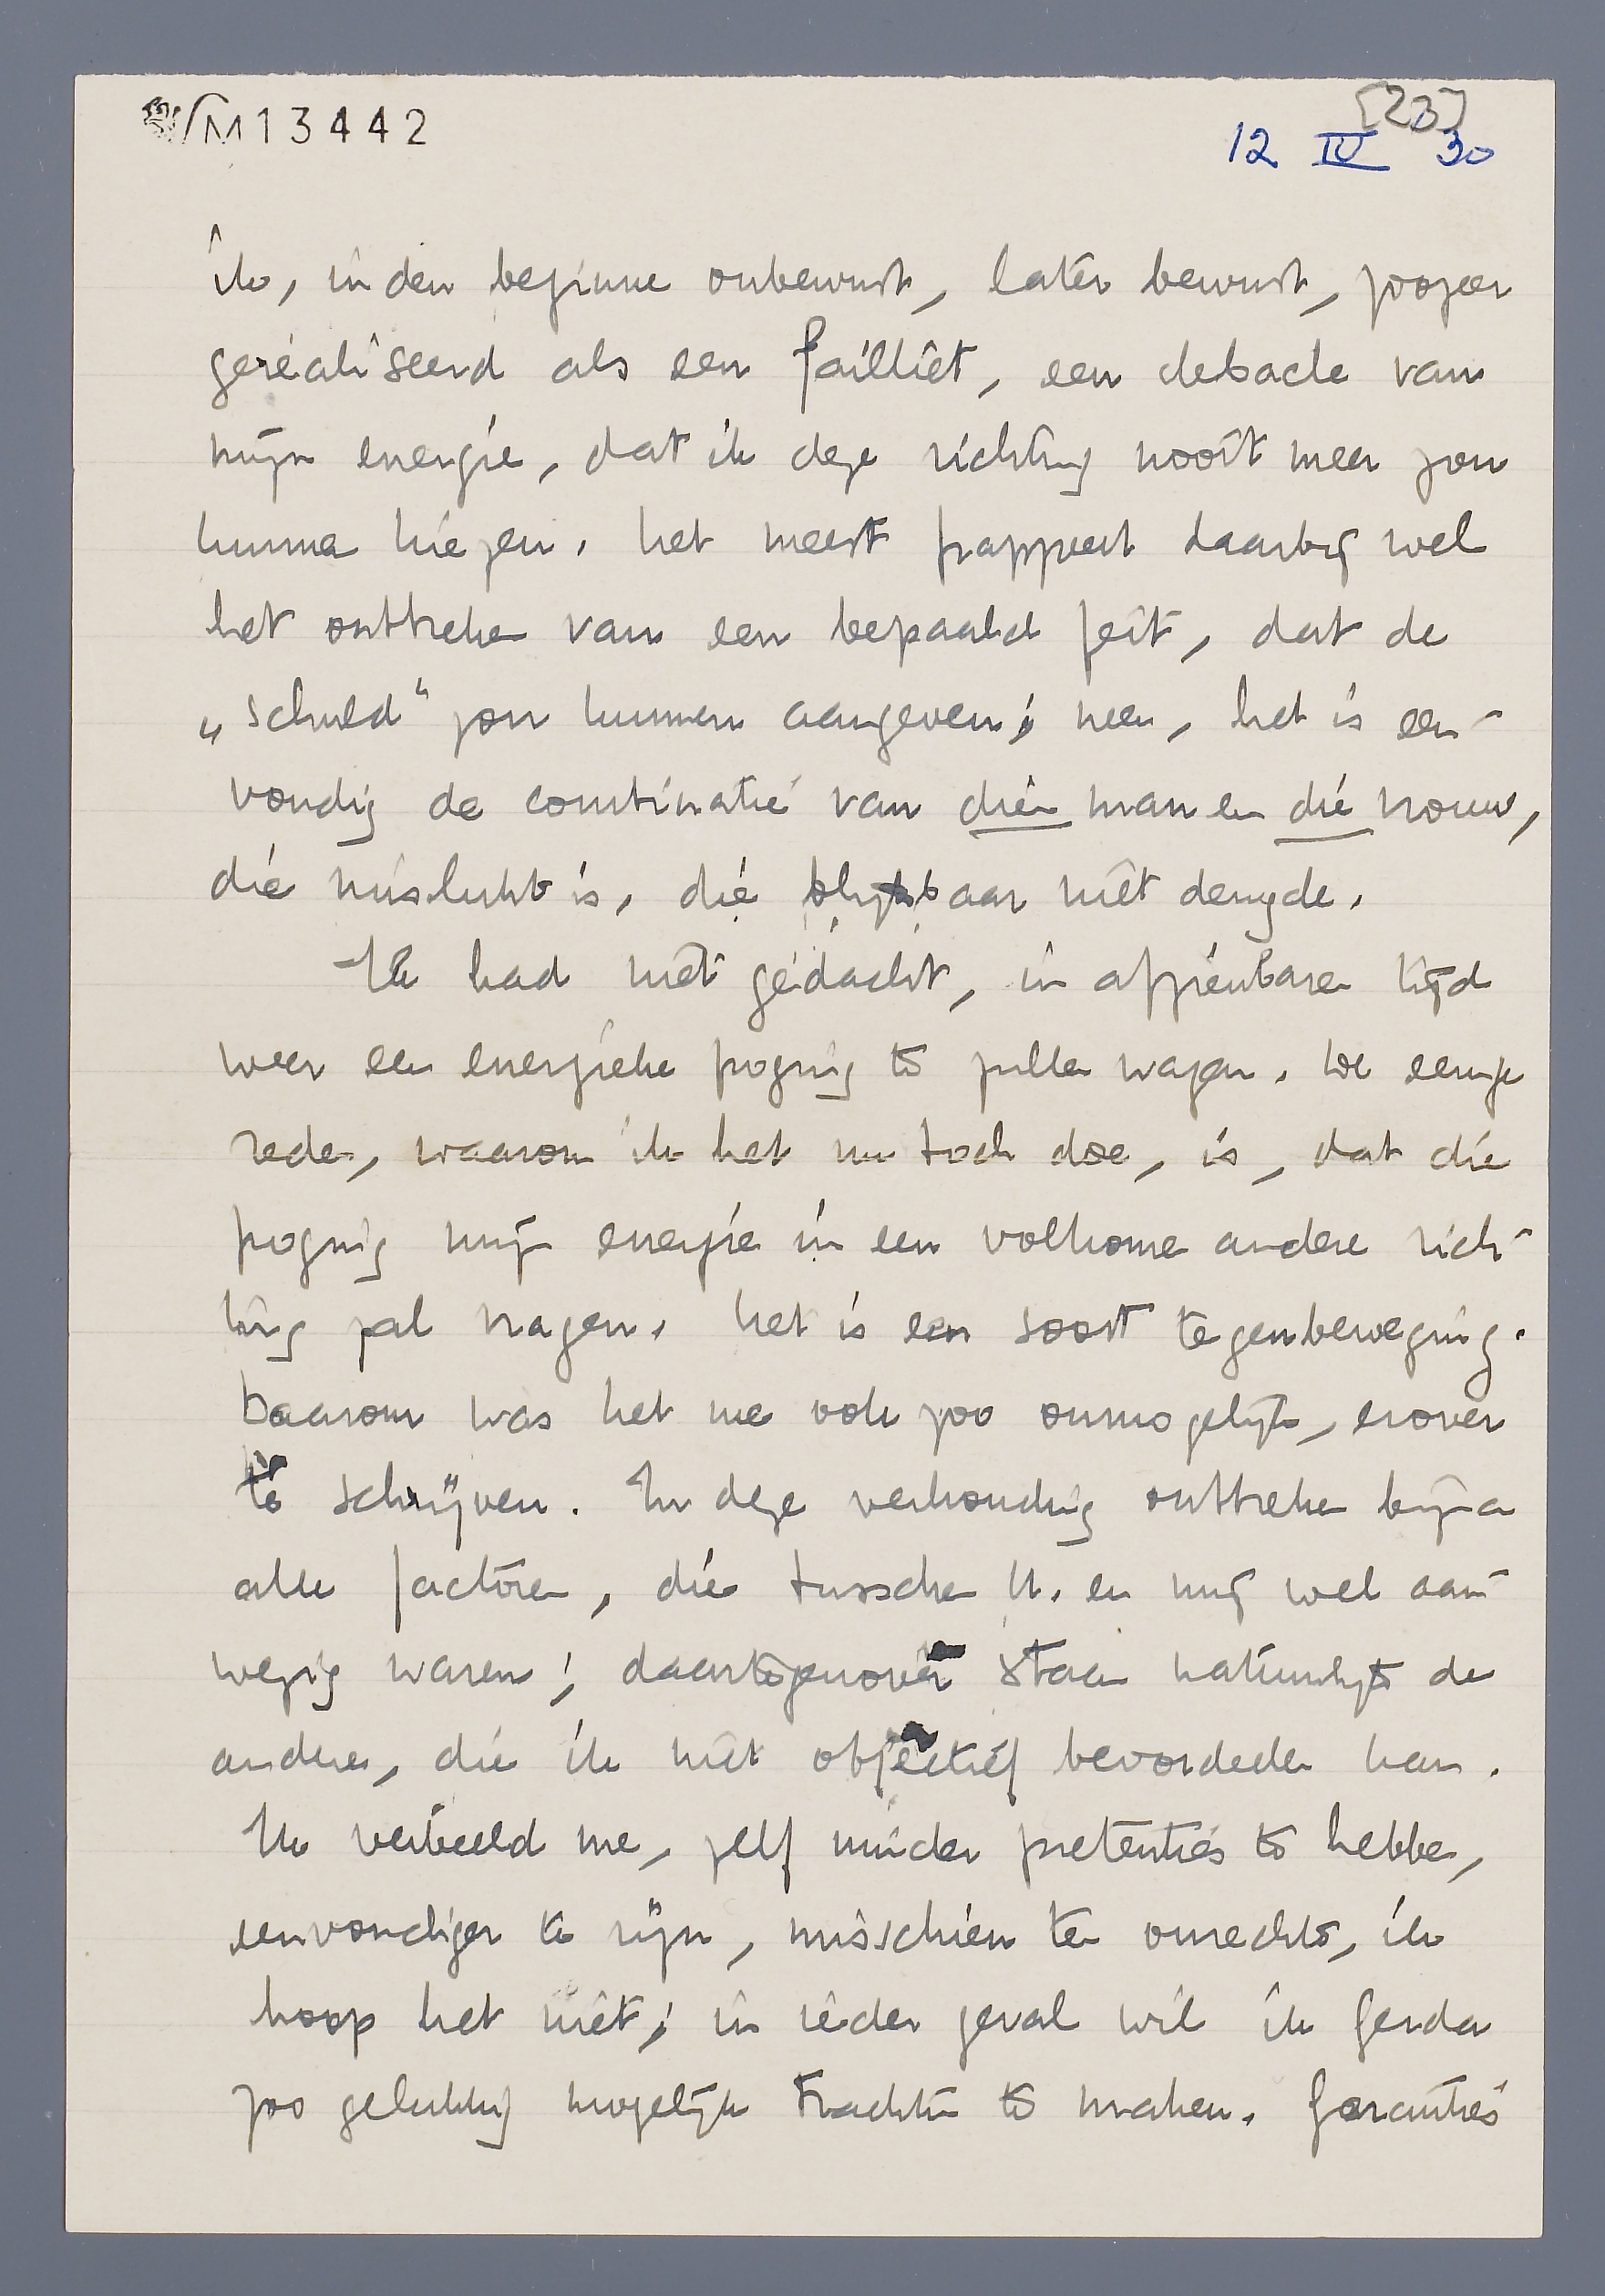 M 13442
[23]
12 IV 30
ik, in den beginne onbewust, later bewust, zoozeer
gerealiseerd als een failliet, een debacle van
mijn energie, dat ik deze richting nooit meer zou
kunnen kiezen. Het meest frappeert daarbij wel
het ontbreken van een bepaald feit, dat de
„schuld" zou kunnen aangeven; neen, het is een-
voudig de combinatie van dien man en die vrouw,
die mislukt is, die blijkbaar niet deugde.
Ik had niet gedacht, in afzienbaren tijd
weer een energieke poging te zullen wagen. De eenige
reden, waarom ik het nu toch doe, is, dat die
poging mijn energie in een volkomen andere rich-
ting zal vragen. Het is een soort tegenbeweging.
Daarom was het me ook zoo onmogelijk, erover
te schrijven. In deze verhouding ontbreken bijna
alle factoren, die tusschen U. en mij wel aan-
wezig waren; daartegenover staan natuurlijk de
andere, die ik niet objectief beoordeelen kan.
Ik verbeeld me, zelf minder pretenties te hebben,
eenvoudiger te zijn, misschien ten onrechte, ik
hoop het niet; in ieder geval wil ik Gerda
zoo gelukkig mogelijk trachten te maken. Garanties